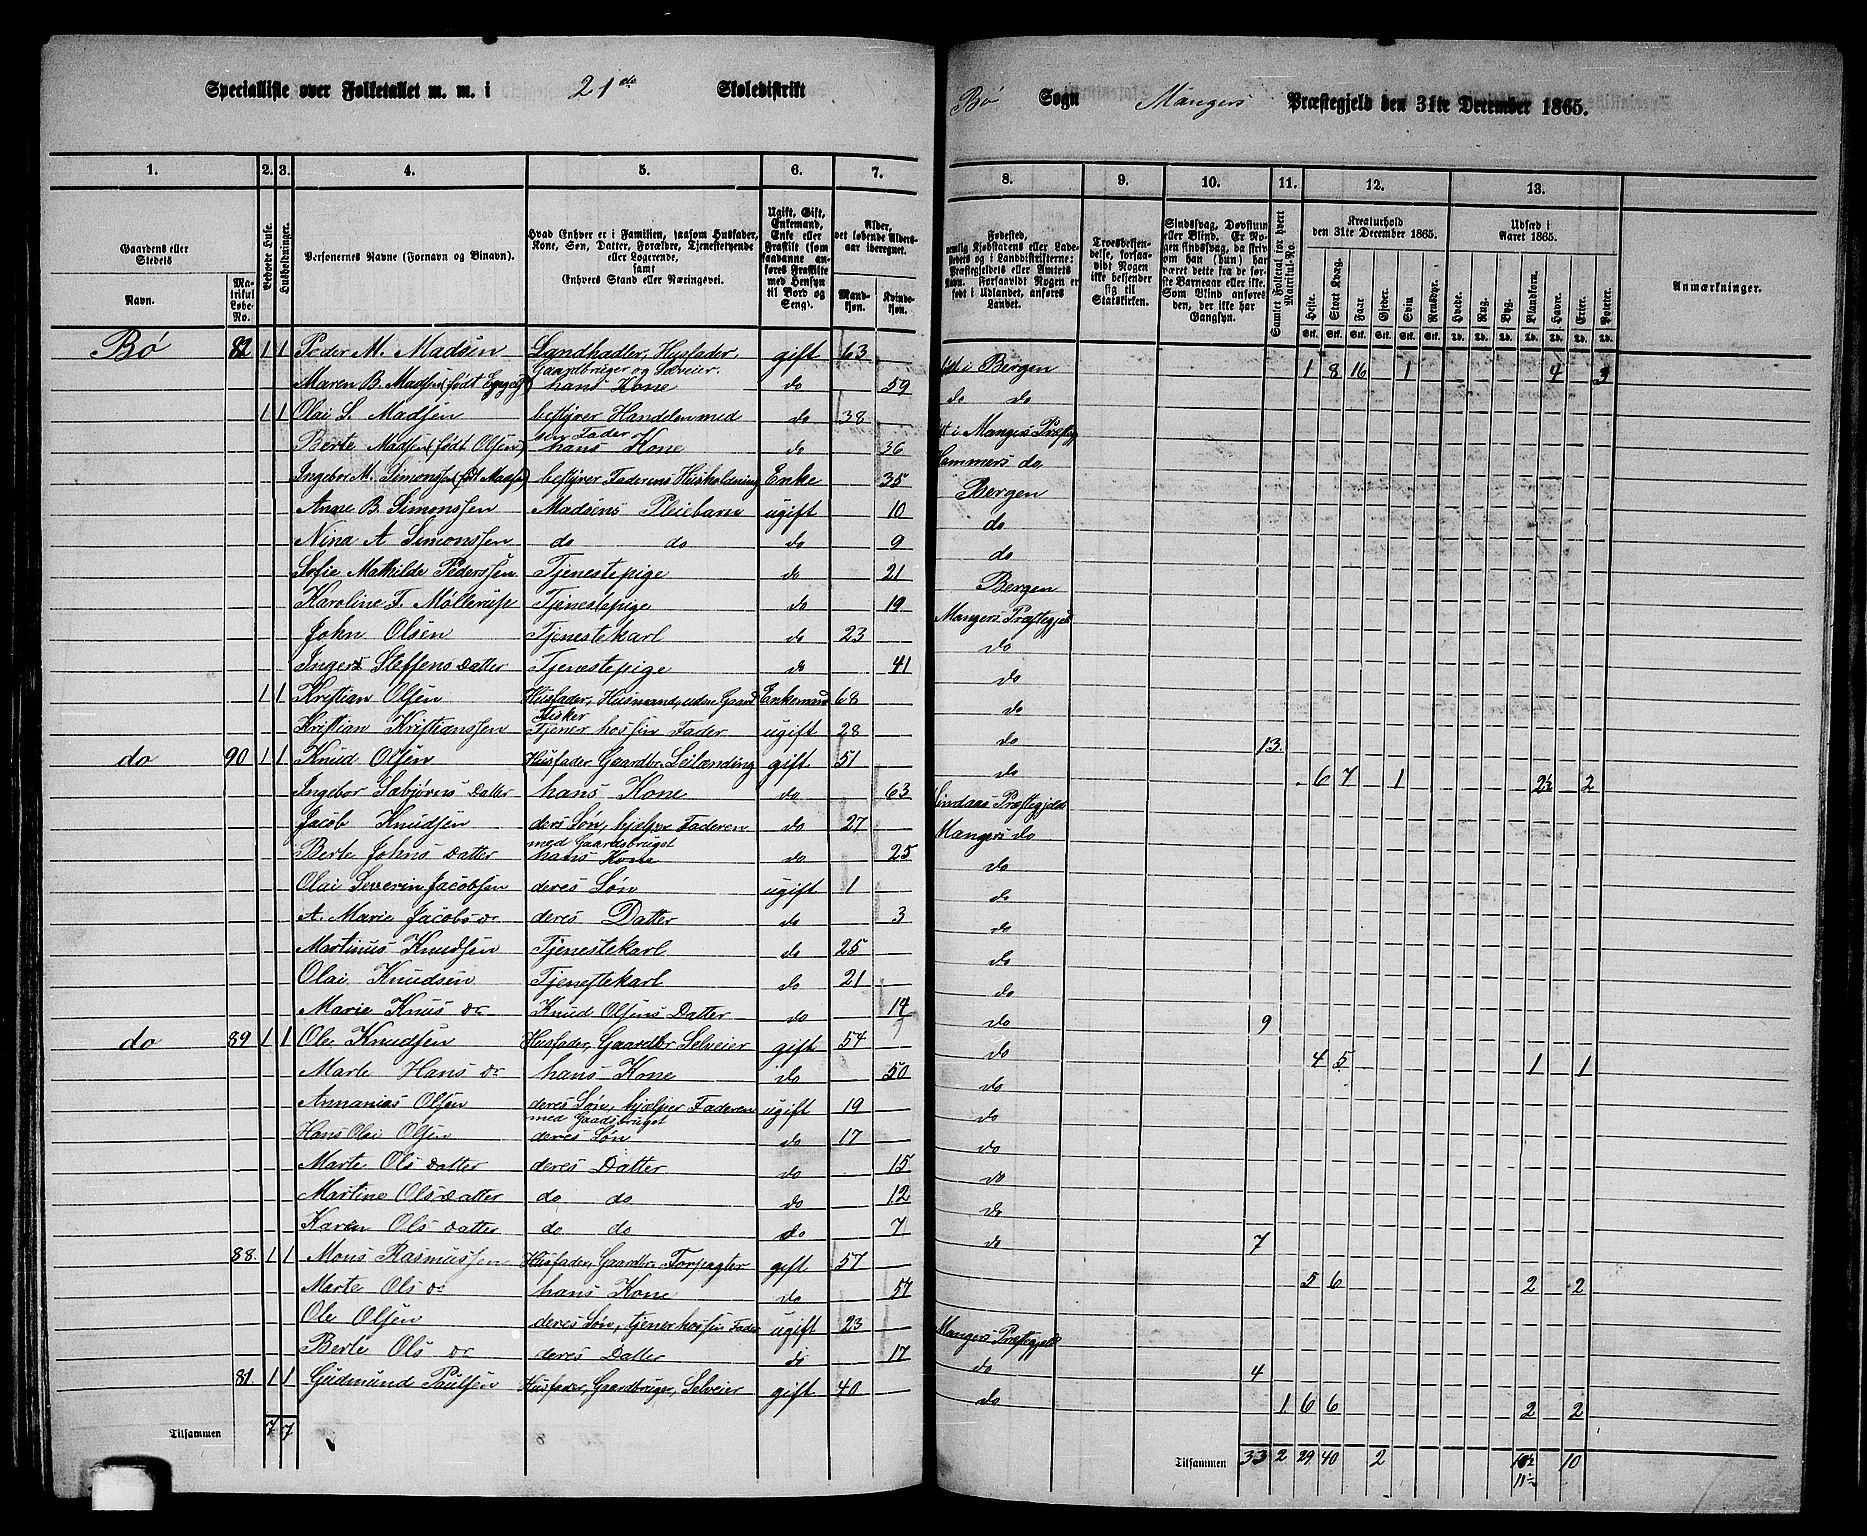 Specialliste over Folketallet m. m. i 21de Skoledistrikt
Bø Sogn Mangers Præstegjeld den 31te December 1865.
1. 2. 3. 4. 5. 6. 7.
8. 9. 10. 11. 12. 13.
Gaardens eller Stedets Navn. Matrikul Løbe-No. Beboede Huse. Husholdninger.
Personernes Navne (Fornavn og Binavn).
Hvad Enhver er i Familien, saasom Husfader, Kone, Søn, Datter, Forældre, Tjenestetyende eller Logerende, samt Enhvers Stand eller Næringsvei.
Ugift, Gift, Enkemand, Enke eller Fraskilt (som saadanne anføres Fraskilte med Hensyn til Bord og Seng).
Alder, det løbende Aldersaar iberegnet. Mandkjøn. Kvindekjøn.
Fødested, nemlig Kjøbstadens eller Ladestedets og i Landdistrikterne: Præstegjeldets eller Amtets Navn. Forsaavidt Nogen er født i Udlandet, anføres Landet.
Troesbekjendelse, forsaavidt Nogen ikke bekjender sig til Statskirken.
Sindssvag, Døvstum eller Blind. Er Nogen sindssvag, da skrives om han (hun) har været dette fra de første Barneaar eller ikke. Som Blind anføres den, der ikke har Gangsyn.
Samlet Folketal for hvert Matrikul-No.
Kreaturhold den 31te December 1865. Heste. Stort Kvæg. Faar. Gjeder. Svin. Rensdyr.
Udsæd i Aaret 1865. Hvede. Rug. Byg. Blandkorn. Havre. Erter. Poteter.
Anmærkninger.
Bø 82 1 1 Peder M. Madsen Landhadler, Husfader, Gaardbruger og Sælveier. gift 63 født i Bergen 1 8 16 1 4 3
Maren B. Madsen (født Engels) hans Kone do 59 do do
1 1 Olai S. Madsen bestyrer Handelen med sin Fader do 38 født i Mangers Præsteg
Berte Madsen (født Olsen) hans Kone do 36 Hammers do
Ingebor M. Simonssen (født Madsen) bestyrer Faderens Husholdning Enke 35 Bergen
Anne B. Simonssen Madsens Pleiebarn ugift 10 do
Nina A Simonssen do do do 9 do
Sofie Mathilde Pederssen Tjenestepige do 21 Bergen
Karoline F. Møllerup Tjenestepige do 19 Mangers Præstegjeld
John Olsen Tjenestekarl do 23 do
Inger Steffens Datter Tjenestepige do 41 do
1 1 Kristian Olsen Husfader, Husmand, uden Gaard Fisker Enkemand 68 do
Kristian Kristianssen Tjener hos sin Fader ugift 28 do 13
do 90 1 1 Knud Olsen Husfader Gaardbr. Leilænding gift 51 do 6 7 1 2½ 2
Ingebor Sæbjørns Datter hans Kone do 63 Lindaas Præstegjeld
Jacob Knudsen deres Søn, hjælper Faderen med Gaardsbruget do 27 Mangers do
Berte Johns Datter hans Kone do 25 do
Olai Severin Jacobsen deres Søn ugift 1 do
A. Marie Jacobs dr deres Datter do 3 do
Martinus Knudsen Tjenestekarl do 25 do
Olai Knudsen Tjenestekarl do 21 do
Marie Knus dr Knud Olsens Datter do 14 do 9
do 89 1 1 Ole Knudsen Husfader, Gaardbr Selveier gift 54 do 4 5 1 1
Marte Hans dr hans Kone do 50 do
Annanias Olsen deres Søn, hjælper Faderen med Gaadsbruget ugift 19 do
Hans Olai Olsen deres Søn do 17 do
Marte Ols Datter deres Datter do 15 do
Martine Ols Datter do do do 12 do
Karen Ols Datter do do do 7 do 7
88. 1 1 Mons Rasmussen Husfader, Gaardbr. Forpagter gift 57 5 6 2 2
Marte Ols dr hans Kone do 57
Ole Olsen deres Søn, tjener hos sin Fader ugift 23 Mangers Præstegjeld
Berte Ols dr deres Datter do 17 do 4
81. 1 1 Gudmund Paulsen Husfader, Gaardbruger, Selveier gift 40 do 1 6 6 2 2
Tilsammen 7 7
Tilsammen 33 2 29 40 2 10½ 10
11½